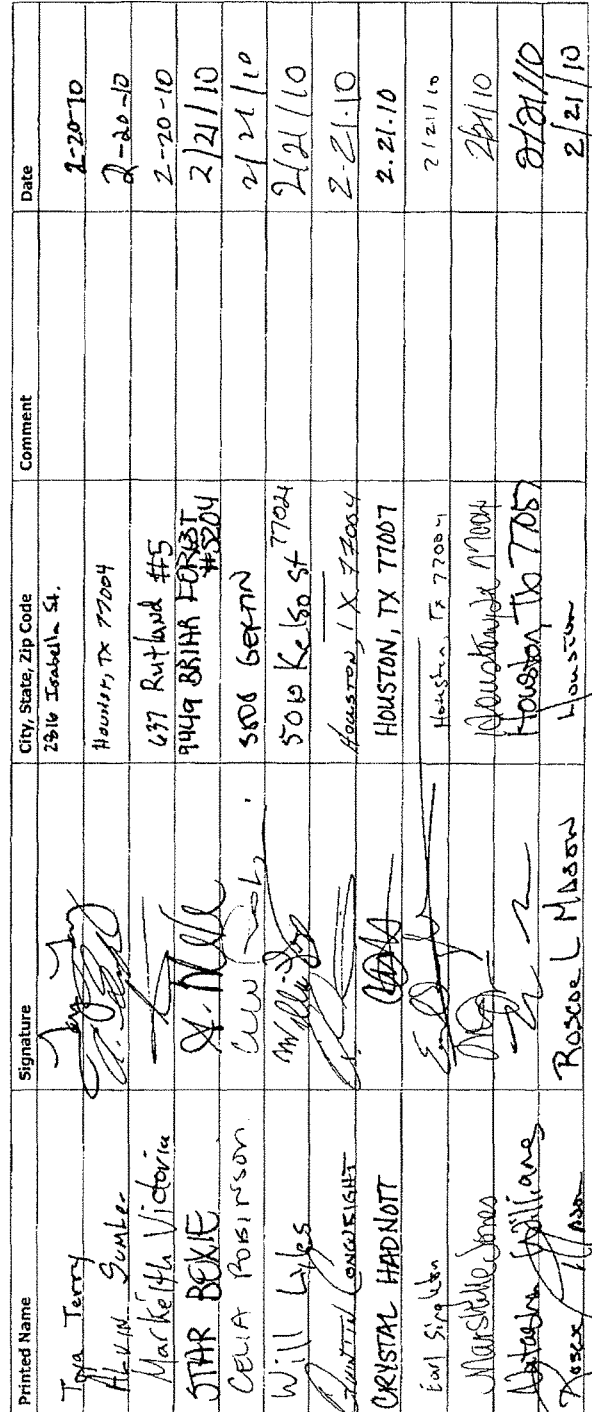 Printed Name Signature City, State, Zip Code Comment Date
Toya Terry 2816 Isabella St. 2-20-10
Alvin Sumler Houston, TX 77004 2-20-10
Markeith Victoria 637 Rutland #5 2-20-10
STAR BEXIE 9449 BRIAR FOREST #5204 2/21/10
CELIA ROBINSON 2/21/10
Will Lyles 5010 Kelso St 77021 2/21/10
QUINTIN LONGWRIGHT HOUSTON, TX 77004 2.21.10
CRYSTAL HADNOTT HOUSTON, TX 77007 2.21.10
Earl Singleton Houston, Tx 77004 2/21/10
Marshelle Jones 2/21/10
Natasha Williams Houston Tx 77057 2/21/10
Roscoe Mason Roscoe L Mason Houston 2/21/10